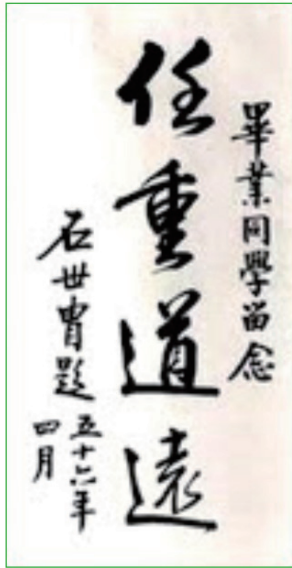 畢業同學留念
任重道遠
石世胄題
五十六年
四月